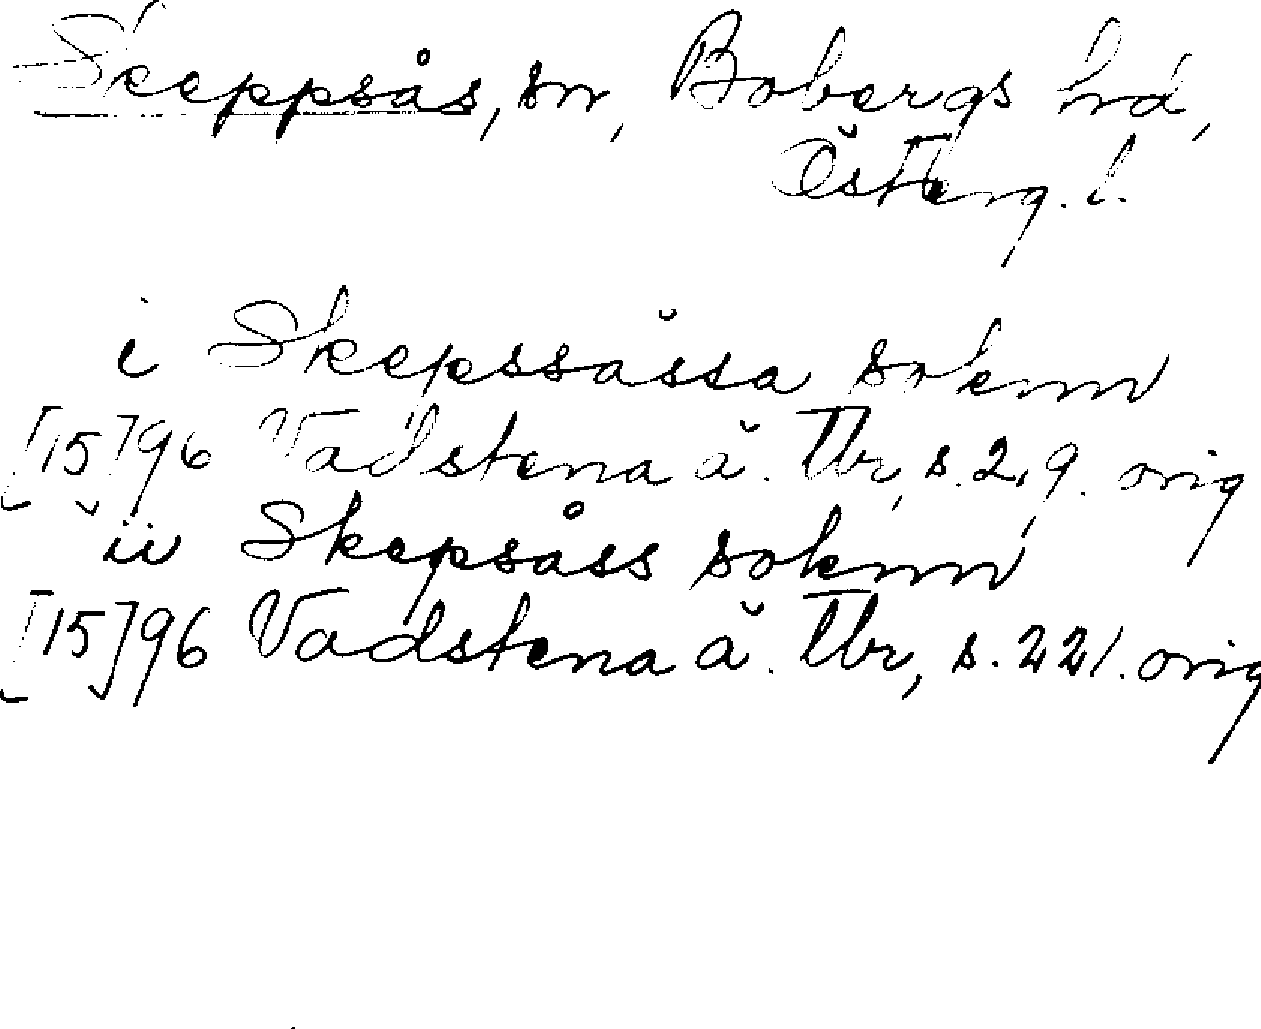 Skeppsås, sn, Bobergs hd,
Österg. l.
i Skepssåssa sokenn
[15]96 Vadstena ä. Tbr, s. 2, 9. orig
ii Skepsåss sokenn
[15]96 Vadstena ä. Tbr, s. 221. orig